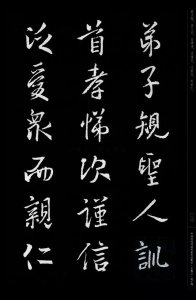 弟子規聖人訓
首孝悌次謹信
泛愛眾而親仁